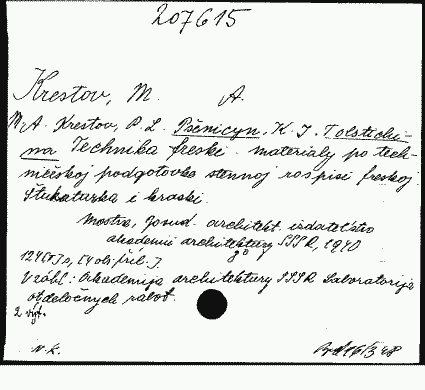 207615
Krestov, M. A.
M. A. Krestov, P. L. Pšenicyn, K. I. Tolstichi-
na Technika freski. materialy po tech-
ničeskoj podgotovke stennoj rospisi freskoj.
Štukaturka i kraski.
Moskva, Gosud. architekt. izdateľstvo
akademii architektury SSSR, 1940
124 (I) s, (4 obr. příl.)
V záhl.: Akademija architektury SSSR Laboratorija
otdeločnych rabot.
2 výt.